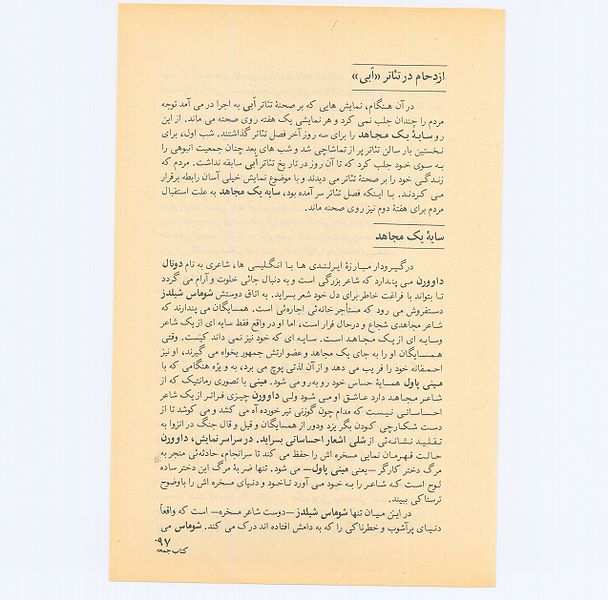 ازدحام در تئاتر «اَبی»
در آن هنگام، نمایش هایی که بر صحنۀ تئاتر اَبی به اجرا در می آمد توجه
مردم را چندان جلب نمی کرد و هر نمایشی یک هفته روی صحنه می ماند. از این
رو سایۀ یک مجاهد را برای سه روز آخر فصل تئاتر گذاشتند. شب اول، برای
نخستین بار سالن تئاتر پر از تماشاچی شد و شب های بعد چنان جمعیت انبوهی را
به سوی خود جلب کرد که تا آن روز در تاریخ تئاتر اَبی سابقه نداشت. مردم که
زندگی خود را بر صحنۀ تئاتر می دیدند و با موضوع نمایش خیلی آسان رابطه برقرار
می کردند. با اینکه فصل تئاتر سر آمده بود، سایه یک مجاهد به علت استقبال
مردم برای هفتۀ دوم نیز روی صحنه ماند.
سایۀ یک مجاهد
در گیرودار مبارزۀ ایرلندی ها با انگلیسی ها، شاعری به نام دونال
داوورن می پندارد که شاعر بزرگی است و به دنبال جائی خلوت و آرام می گردد
تا بتواند با فراغت خاطر برای دل خود شعر بسراید. به اتاق دوستش شوماس شیلدز
دستفروش می رود که مستأجر خانه‌ئی اجاره‌ئی است. همسایگان می پندارند که
شاعر مجاهدی شجاع و درحال فرار است، اما او در واقع فقط سایه ای از یک شاعر
وسایه ای از یک مجاهد است. سایه ای که خود نیز نمی داند کیست. وقتی
همسایگان او را به جای یک مجاهد و عضو ارتش جمهوریخواه می گیرند، او نیز
احمقانه خود را فریب می دهد و از آن لذتی پوچ می برد، به ویژه هنگامی که با
مینی پاول همسایۀ حساس خود رو به رو می شود. مینی با تصوری رمانتیک که از
شاعر مجاهد دارد عاشق او می شود ولی داوورن چیزی فراتر از یک شاعر
احساساتی نیست که مدام چون گوزنی تیر خورده آه می کشد و می کوشد تا از
دست شکارچی کودن بگریزد ودور از همسایگان و قیل و قال جنگ در انزوا به
تقلید نشانه‌ئی از شلی اشعار احساساتی بسراید. در سراسر نمایش، داوورن
حالت قهرمان نمایی مسخره اش را حفظ می کند تا سرانجام، حادثه‌ئی منجر به
مرگ دختر کارگر —یعنی مینی پاول— می شود. تنها ضربۀ مرگ این دختر ساده
لوح است که شاعر را به خود می آورد تا خود و دنیای مسخره اش را باوضوح
ترسناکی ببیند.
در این میان تنها شوماس شیلدز —دوست شاعر مسخره— است که واقعاً
دنیای پرآشوب و خطرناکی را که به دامش افتاده اند درک می کند. شوماس می
۹۷
کتاب جمعه